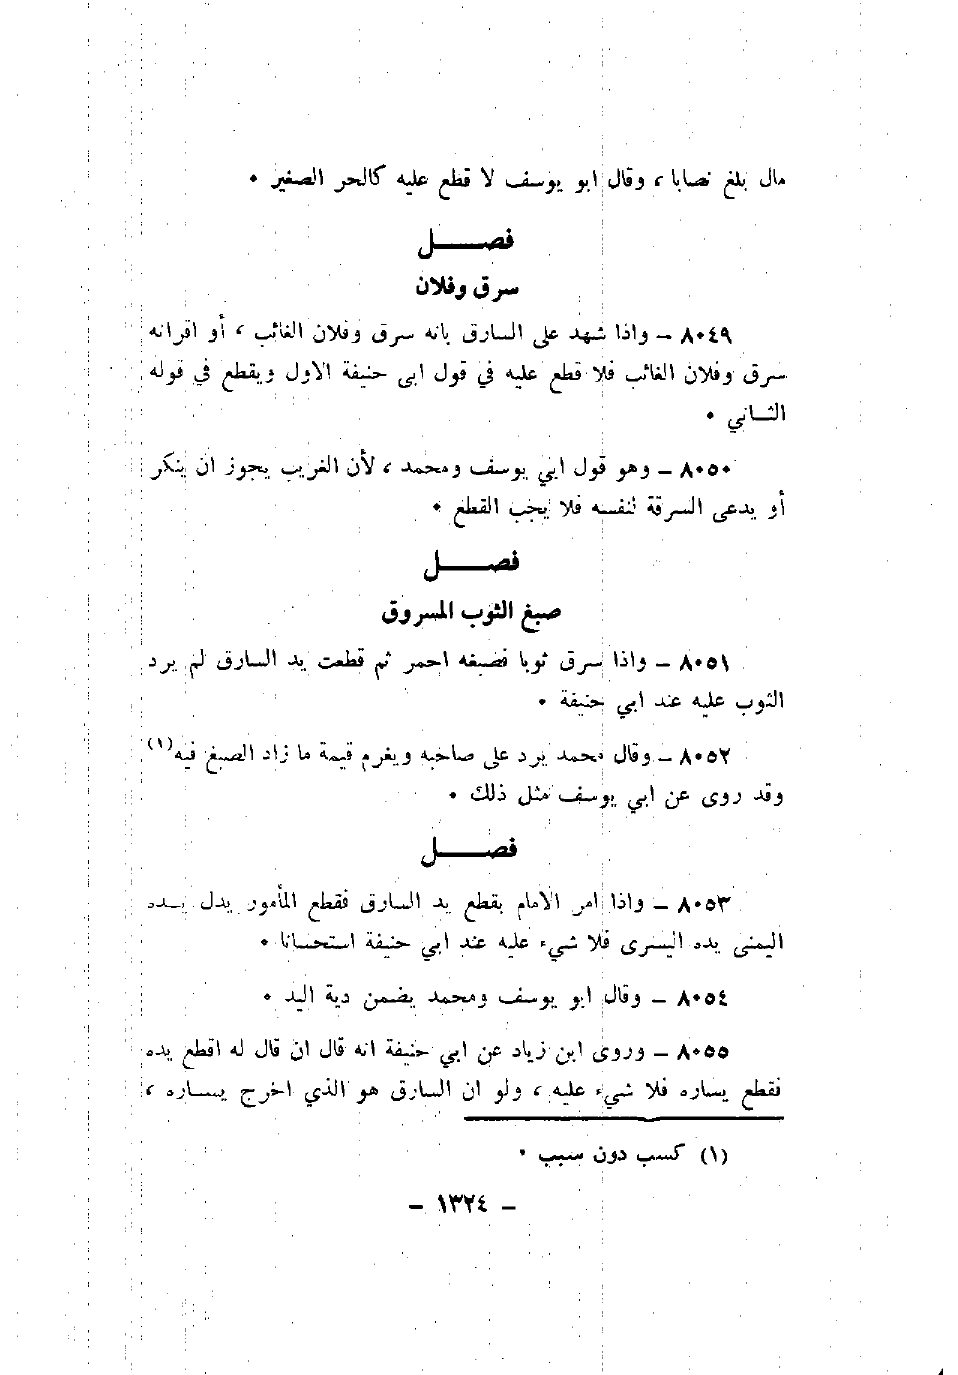 مال بلغ نصابا ، وقال ابو يوسف لا قطع عليه كالحر الصغير ٠
فصـــــل
سرق وفلان
٨٠٤٩ – واذا شهد على السارق بانه سرق وفلان الغائب ، أو اقرانه
سرق وفلان الغائب فلا قطع عليه في قول ابى حنيفة الاول ويقطع في قوله
الثــاني ٠
٨٠٥٠ – وهو قول ابي يوسف ومحمد ، لأن الغريب يجوز ان ينكر
أو يدعى السرقة لنفسه فلا يجب القطع ٠
فصـــــل
صبغ الثوب المسروق
٨٠٥١ – واذا سرق ثوبا فصبغه احمر ثم قطعت يد السارق لم يرد
الثوب عليه عند ابي حنيفة ٠
٨٠٥٢ – وقال محمد يرد على صاحبه ويغرم قيمة ما زاد الصبغ فيه(١)
وقد روى عن ابي يوسف مثل ذلك ٠
فصـــــل
٨٠٥٣ – واذا امر الامام بقطع يد السارق فقطع المأمور يدل يــده
اليمنى يده اليسرى فلا شيء عليه عند ابي حنيفة استحسانا ٠
٨٠٥٤ – وقال ابو يوسف ومحمد يضمن دية اليد ٠
٨٠٥٥ – وروى ابن زياد عن ابي حنيفة انه قال ان قال له اقطع يده
فقطع يساره فلا شيء عليه ، ولو ان السارق هو الذي اخرج يســاره ،
(١) كسب دون سبب ٠
– ١٣٢٤ –